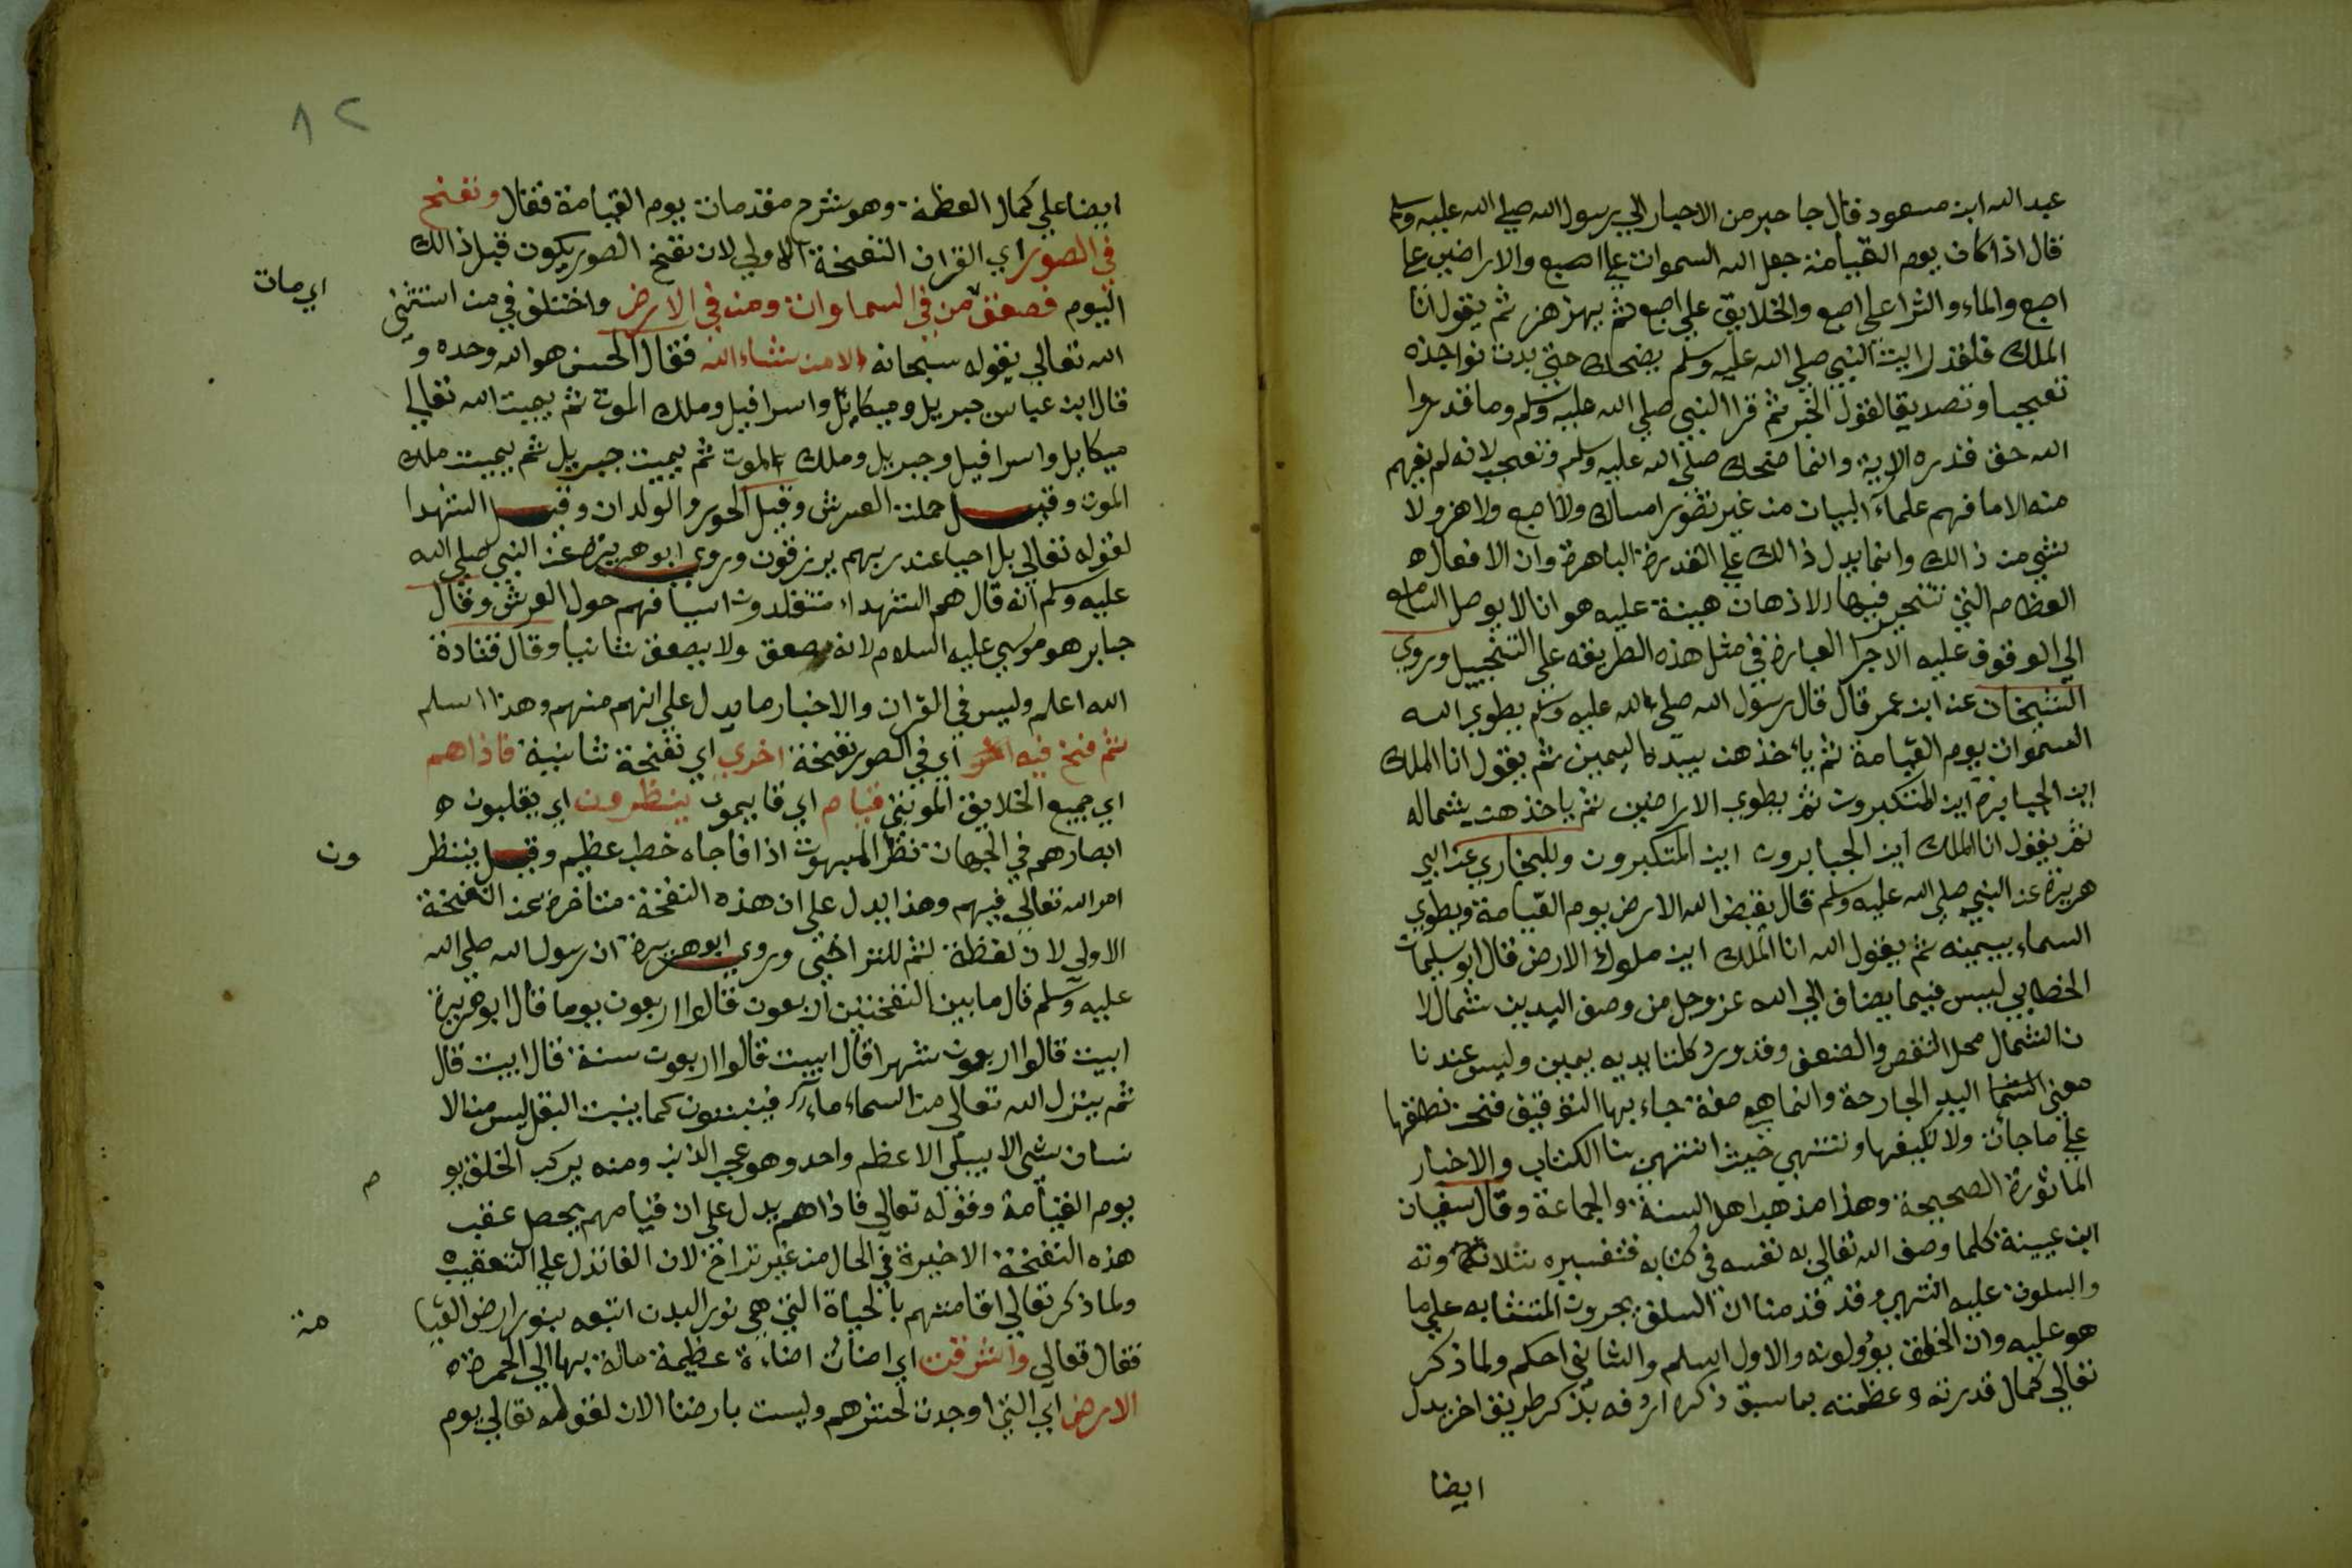 عبد الله ابن مسعود قال جا حبر من الاحبار الي رسول الله صلي الله عليه وسلم
قال اذا كان يوم القيامة جعل الله السموات علي اصبع والاراضين علي
اصبع والماء والثرا علي اصبع والخلايق علي اصبع ثم يهزهز ثم يقول انا
الملك فلقد رايت النبي صلي الله عليه وسلم يضحك حتي بدت نواجذه
تعجبا وتصديقا لقول الخبر ثم قرا النبي صلي الله عليه وسلم وما قدروا
الله حق قدره الاية وانما ضحك صلي الله عليه وسلم وتعجب لانه لم يفهم
منه الا ما فهم علماء البيان من غير تصور امساك ولا اصبع ولا هز ولا
شي من ذالك وانما يدل ذالك علي القدرة الباهرة وان الافعال ه
العظام التي تتحير فيها الاذهان هينة عليه هوانا لا يوصل السامع
الي الوقوف عليه الا جرا العبارة في مثل هذه الطريقه علي التخييل وروي
الشيخان عن ابن عمر قال قال رسول الله صلي الله عليه وسلم يطوي الله
السموات يوم القيامة ثم ياخذهن بيده اليمين ثم يقول انا الملك
اين الجبابرة اين المتكبرون ثم يطوي الاراضين ثم ياخذهن بشماله
ثم يقول انا الملك اين الجبابرون اين المتكبرون وللبخاري عن ابي
هريرة عن النبي صلي الله عليه وسلم قال يقبض الله الارض يوم القيامة ويطوي
السماء بيمينه ثم يقول الله انا الملك اين ملوك الارض قال ابو سليمان
الخطابي ليس فيما يضاف الي الله عز وجل من وصف اليدين شمال لا
ن الشمال محل النقص والضعف وقد ورد كلتا يديه يمين وليس عندنا
معني اليد الجارحة وانما هو صفة جاء بها التوقيف فنحن نطلقها
علي ما جات ولا نكيفها وننتهي حيث انتهي بنا الكتاب والاخبار
الماثورة الصحيحة وهذا مذهب اهل السنة والجماعة وقال سفيان
ابن عيينة كلما وصف الله تعالي به نفسه في كتابه فتفسيره تلاوته
والسكوت عليه انتهي وقد قدمنا ان السلف يجرون المتشابه علي ما
هو عليه وان الخلف يؤولونه والاول اسلم والثاني احكم ولما ذكر
تعالي كمال قدرته وعظمته بما سبق ذكره اردفه بذكر طريق اخر يدل
ايضا
٨٢
ايضا علي كمال العظمة وهو شرح مقدمات يوم القيامة فقال ونفخ
في الصور اي القران النفخة الاولي لان نفخ الصور يكون قبل ذالك
اليوم فصعق من في السماوات ومن في الارض واختلف في من استثني
اي مات
الله تعالي بقوله سبحانه الا من شاء الله فقال الحسن هو الله وحده و
قال ابن عباس جبريل وميكايل واسرافيل وملك الموت ثم يميت الله تعالي
ميكايل واسرافيل وجبريل وملك الموت ثم يميت جبريل ثم يميت ملك
الموت وقيل حملت العرش وقيل الحور والولدان وقيل الشهدا
لقوله تعالي بل احيا عند ربهم يرزقون وروي ابو هريرة عن النبي صلي الله
عليه وسلم انه قال هم الشهداء متقلدون اسيافهم حول العرش وقال
جابر هو موسي عليه السلام لانه صعق ولا يصعق ثانيا وقال قتادة
الله اعلم وليس في القران والاخبار ما يدل علي انهم منهم وهذا اسلم
ثم فنخ فيه اي في الصور نفخة اخري اي نفخة ثانية فاذاهم
اي جميع الخلايق الموتي قيام اي قايمون ينظرون اي يقلبون ه
ابصارهم في الجهات نظر المبهوت اذا فاجاه خطب عظيم وقيل ينتظر
ون
امر الله تعالي فيهم وهذا يدل علي ان هذه النفخة متاخرة عن النفخة
الاولي لان لفظة ثم للتراخي وروي ابو هريرة ان رسول الله صلي الله
عليه وسلم قال ما بين النفختين اربعون قالوا اربعون يوما قال ابو هريرة
ابيت قالوا اربعون شهرا قال ابيت قالوا اربعون سنة قال ابيت قال
ثم ينزل الله تعالي من السماء ماء فينبتون كما ينبت البقل ليس من الا
نسان شي الا يبلي الا عظم واحد وهو عجب الذنب ومنه يركب الخلق يو
م
يوم القيامة وقوله تعالي فاذاهم يدل علي ان قيامهم يحصل عقب
هذه النفخة الاخيرة في الحال من غير تراخ لان الفا تدل علي التعقيب ه
ولما ذكر تعالي اقامتهم بالحياة التي هي نور البدن اتبعه بنور ارض القيا
مة
فقال تعالي واشرقت اي اضات اضاءة عظيمة مالة بها الي الحمرة ه
الارض اي التي اوجدت لحشرهم وليست بارضنا الان لقوله تعالي يوم